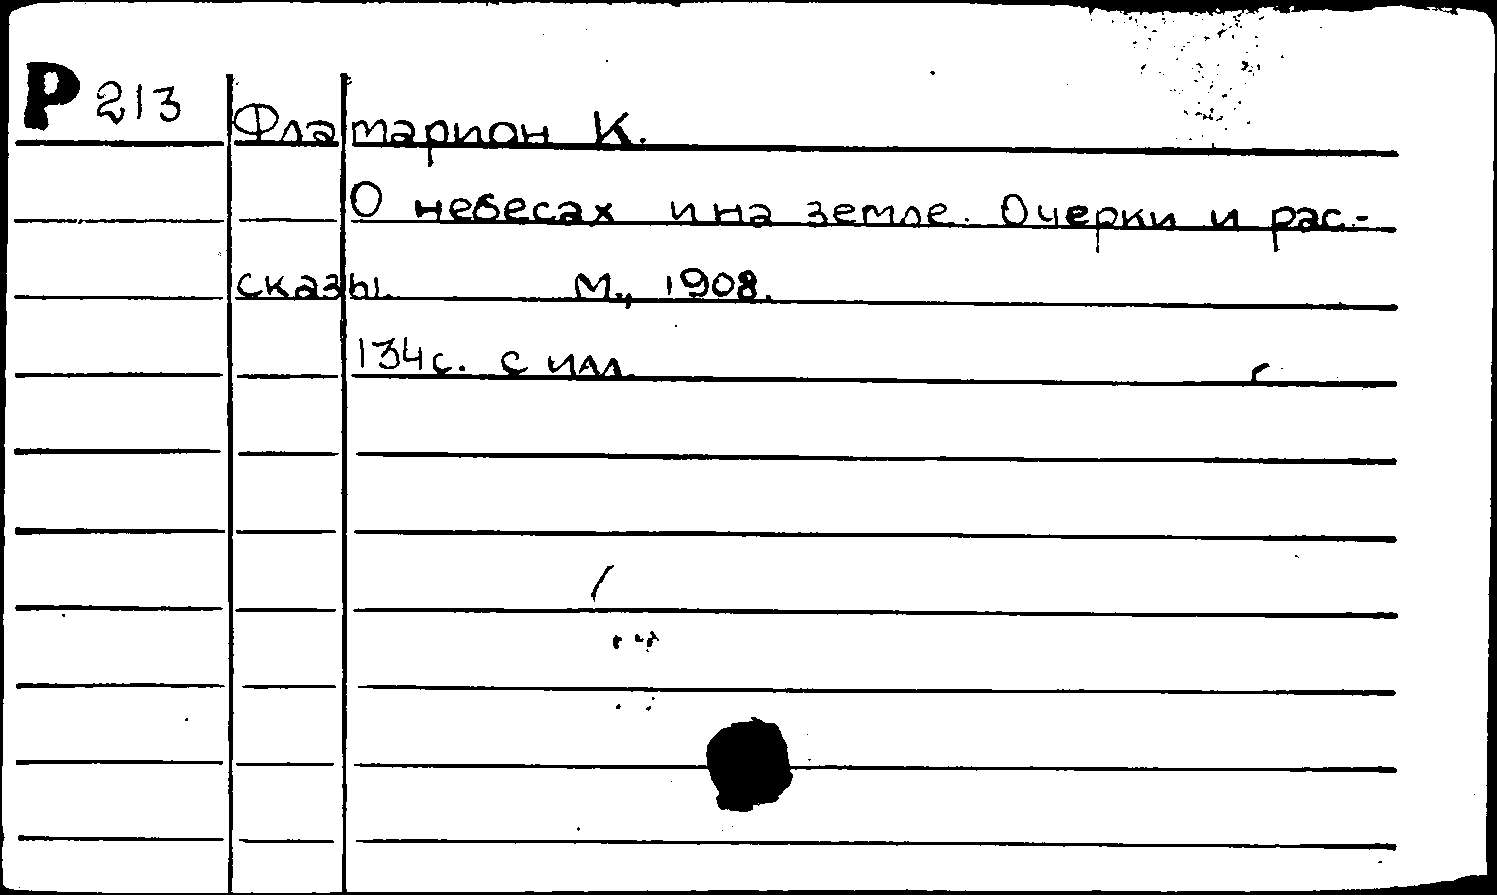 Р 213
Фламарион К.
О небесах и на земле. Очерки и рас-
сказы. М., 1908.
134с. с илл.